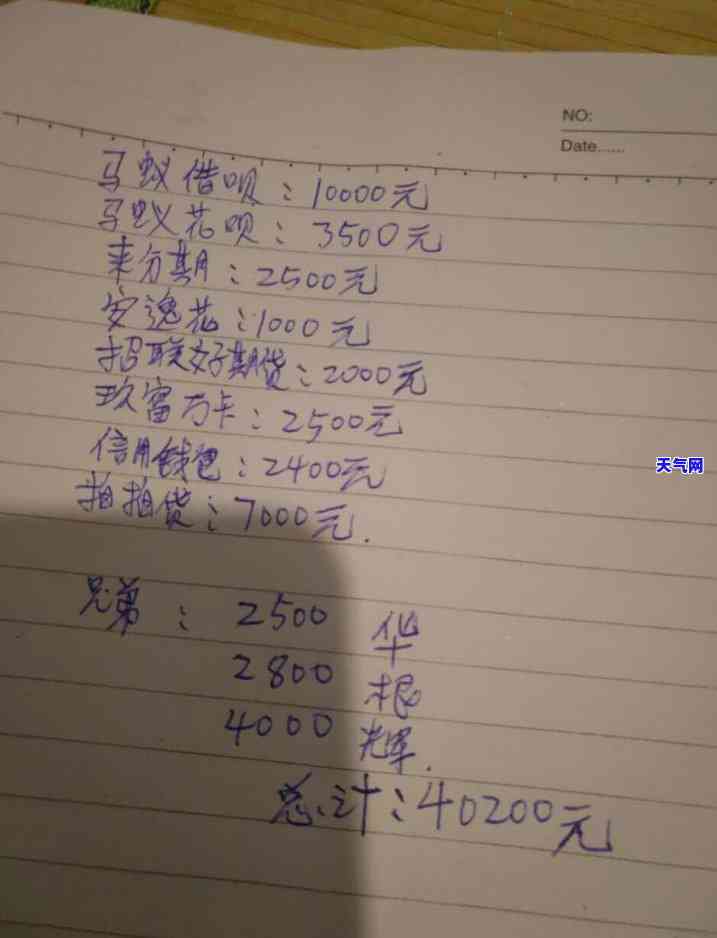 NO:
Date......
马蚁借呗：10000元
马蚁花呗：3500元
来分期：2500元
安逸花：1000元
招联好期货：2000元
玖富万卡：2500元
信用钱包：2400元
拍拍货：7000元.
兄弟：2500 华
2800 根
4000 光军.
总计：40200元
天气网